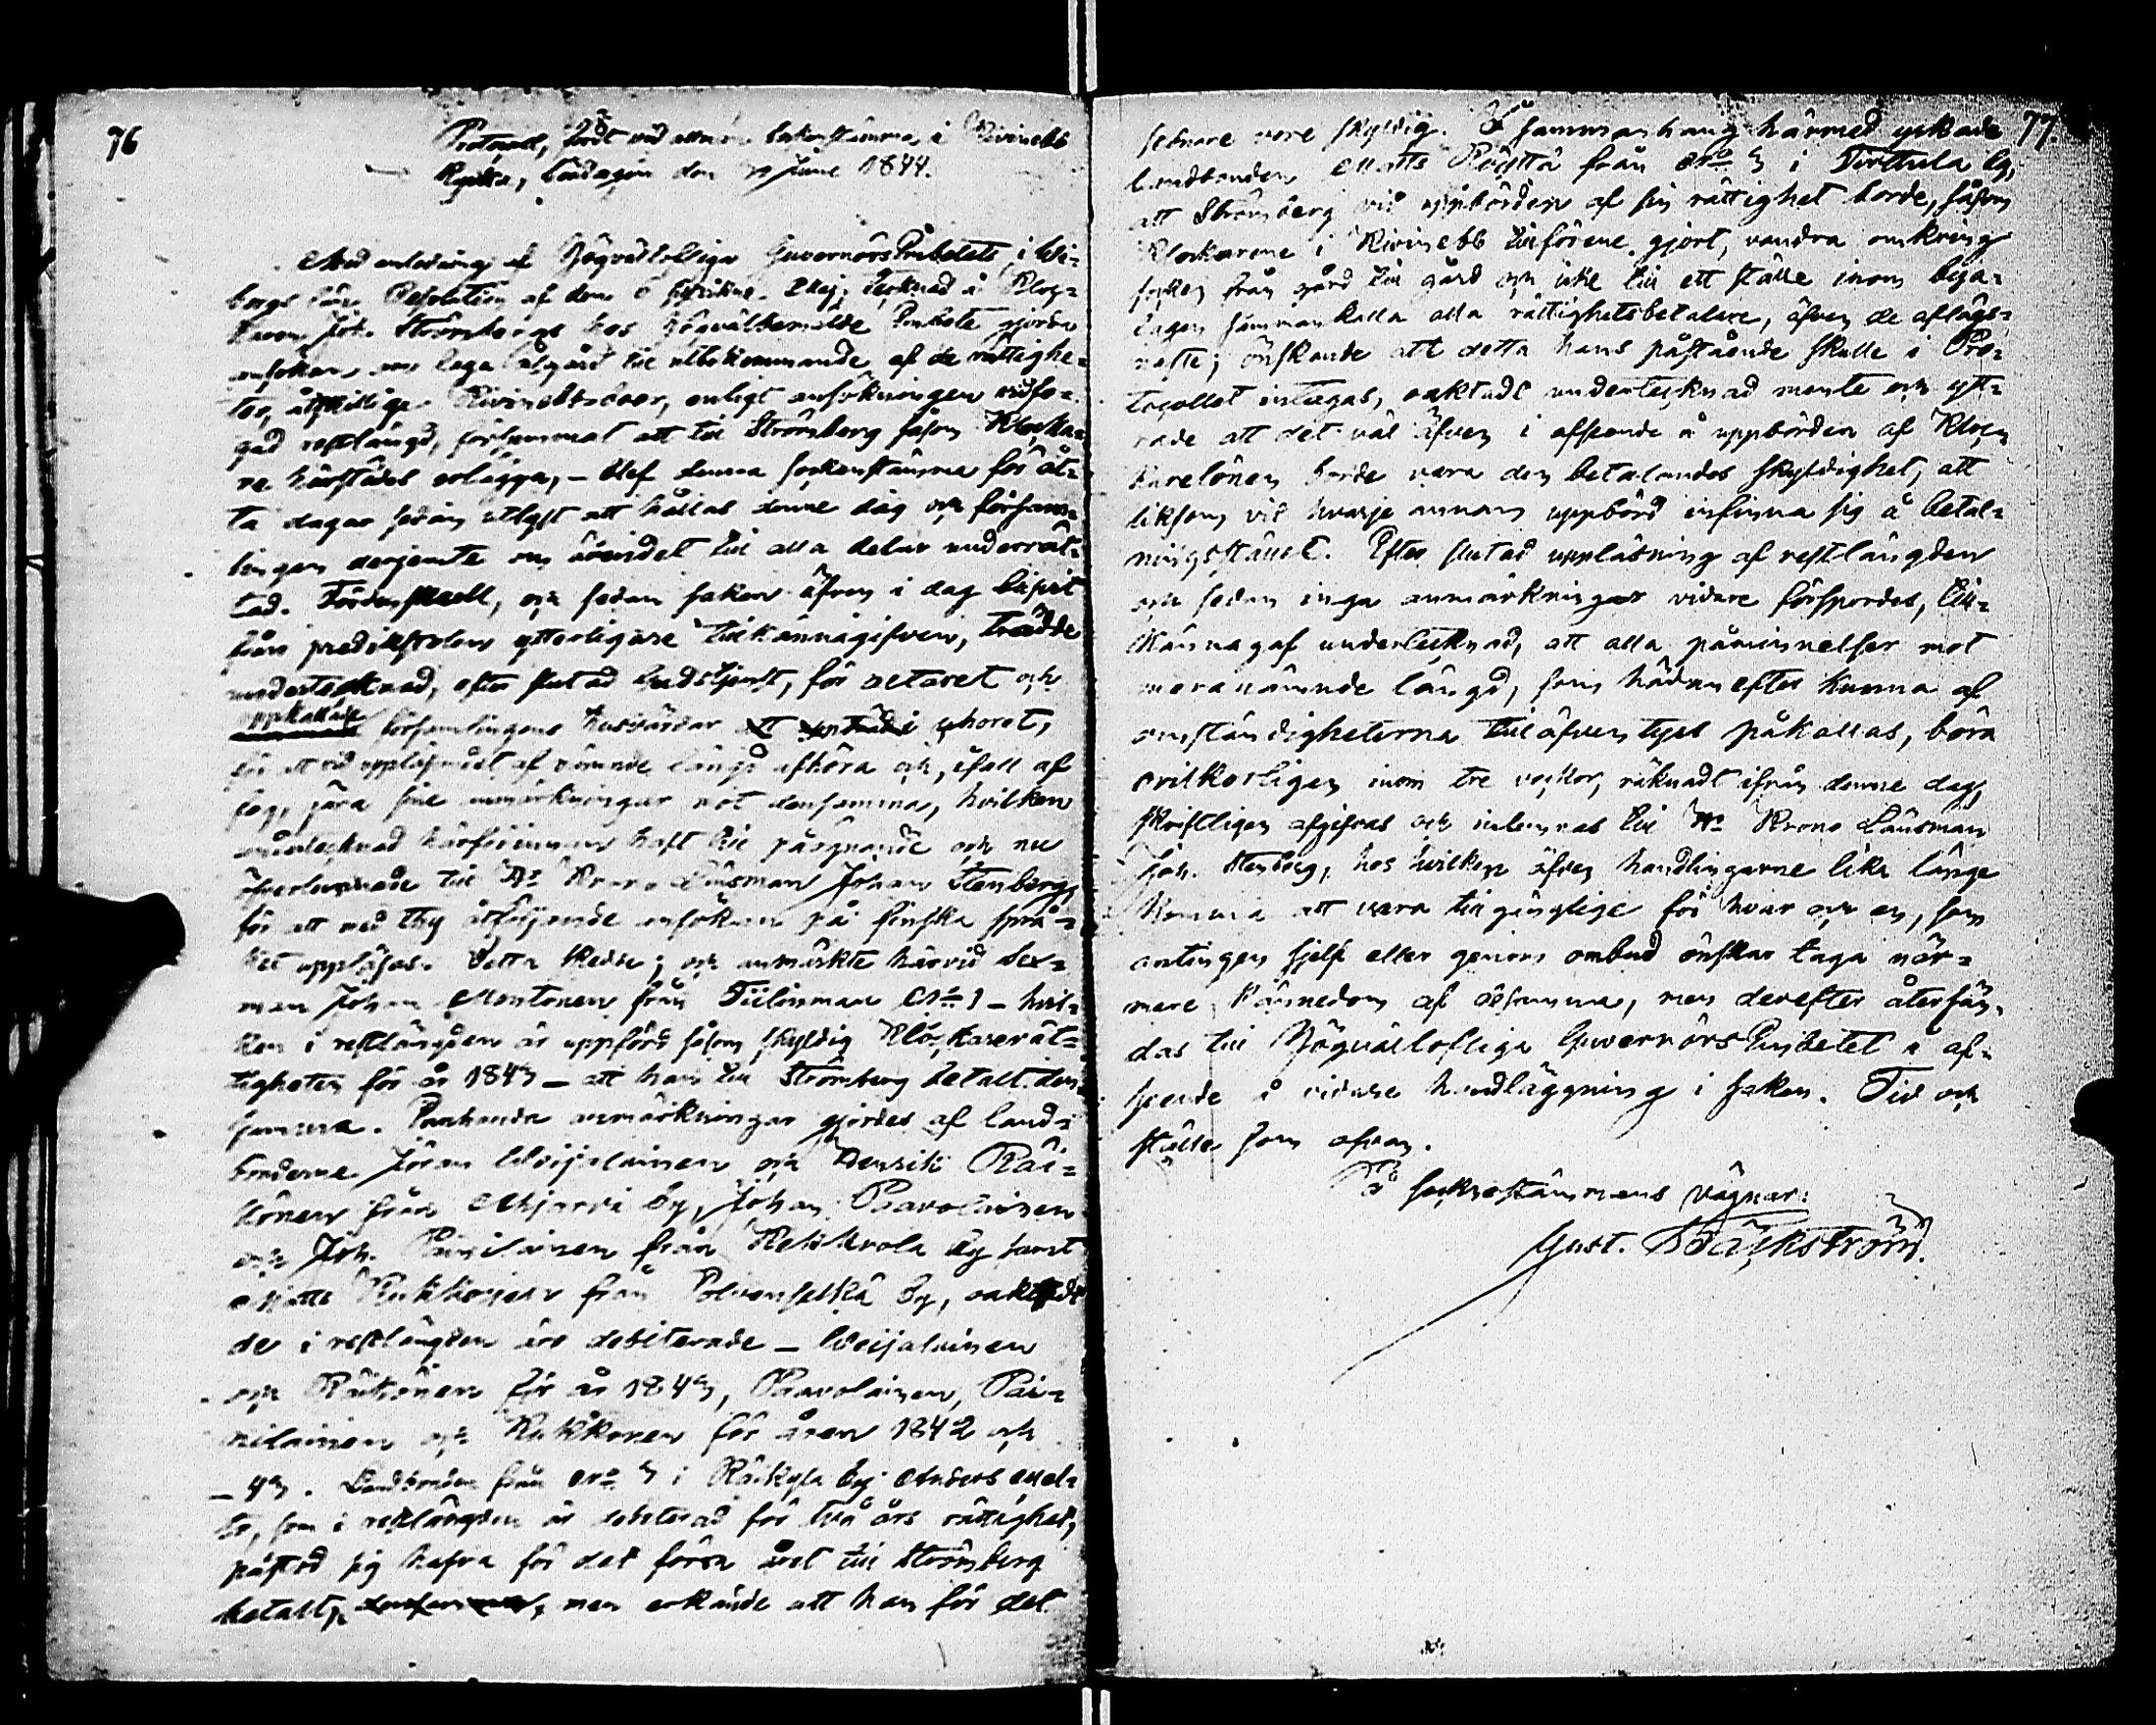 76
Protocoll, fördt vid allmän Sockenstämma i Kivinebb
Kyrka, Söndagen den Junii 1844.
Med anledning af Högvällofliga Guvernörs Embetets i Wi-
borgs län Resolution af den 6 sistlidne Maj, tecknad å Kloc-
karen Joh. Strömbergs hos Högvälbemälde Embete gjorda
ansökan om laga åtgärd till utbekommande af de rättighe-
ter, åtskillige Kivinebboboer, enligt ansökningen vidfo-
gad restlängd, försummat att till Strömberg såsom Klocka-
re härstädes erlägga, – blef denna sockenstämma för åt-
ta dagar sedan utlyst att hållas denne dag och försam-
lingen derjemte om ärendet till alla delar underrät-
tad. Fördenskull, och sedan saken äfven i dag blifvit
från predikstolen ytterligare tillkännagifven, trädde
undertecknad, efter slutad Gudstjenst, för altaret och
uppkallade församlingens husbönder i choret,
för att vid uppläsandet af nämnde längd afhöra och, ifall af
sig, göra sine anmärkningar mot densamma, hvilken
undertecknad härförinnan haft till påseende och nu
öfverlemnade till Hr Krono Länsman Johan Stenberg,
för att med thy åtföljande ansökan på finska språ-
ket uppläsas. Detta skedde; och anmärkte härvid Sex-
man Johan Montonen från Tiilinmaa No 1 – hvil-
ken i restlängden är uppförd såsom skyldig Klockarerät-
tigheten för år 1843 – att han till Strömberg betalt den-
samma. Enahanda anmärkningar gjordes af land-
bönderne Jöran Weijalainen och Henrik Räi-
könen från by, Johan Paavolainen
och Joh. Painilainen från Kekkrola by samt
Matts Kukkonen från Polvenselkä by, oaktadt
de i restlängden äro debiterade – Weijalainen
och Räikönen för år 1843, Paavolainen, Pai-
nilainen och Kukkonen för åren 1842 och
– 43. Landbonden från No 3 i Räikylä by Anders
som i restlängden är debiterad för två års rättighet,
påstod sig hafva för det förra året till Strömberg
betalt, men erkände att han för det
77.
sednare vore skyldig. I sammanhang härmed yrkade
landbonden Matts Pöyttä från No 3 i Tirttula by,
att Strömberg vid uppbörden af sin rättighet borde, såsom
Klockarene i Kivinebb tillförene gjort, vandra omkring
socknen från gård till gård och icke till ett ställe inom bya-
lagen sammankalla alla rättighetsbetalare, äfven de aflägs-
naste; önskande att detta hans påstående skulle i Pro-
tocollet intagas, oaktadt undertecknad mente och ytt-
rade att det väl äfven i afseende å uppbörden af Kloc-
karelönen borde vara den betalandes skyldighet, att
liksom vid hvarje annan uppbörd infinna sig å betal-
ningsstället. Efter slutad uppläsning af restlängden
och sedan inga anmärkningar vidare försporders, till-
kännagaf undertecknad, att alla påminnelser mot
meranämnde längd, som hädanefter kunna af
omständigheterna till äfventyrs påkallas, böra
ovilkorligen inom tre veckor, räknadt ifrån denne dag,
skriftligen afgifvas och inlemnas till Hr Krono Länsman
Joh. Stenberg, hos hvilken äfven handlingarne lika länge
komma att vara tillgänglige för hvar och en, som
antingen sjelf eller genom ombud önskar taga när-
mare kännedom af desamma, men derefter återsän-
das till Högvällofliga Guvernörs Embetet i af-
seende å vidare handläggning i saken. Tid och
ställe som ofvan.
På sockenstämmans vägnar:
Gust. Bäckström.